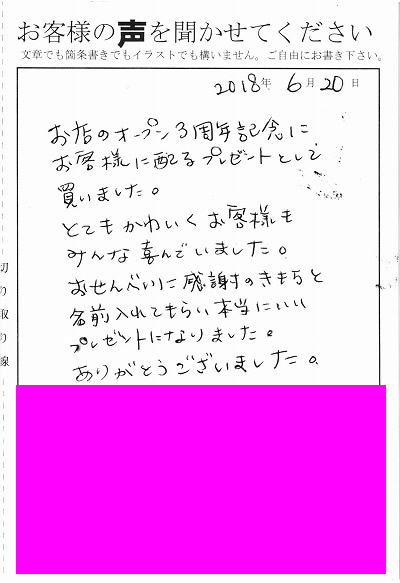 お客様の声を聞かせてください
文章でも箇条書きでもイラストでも構いません。ご自由にお書き下さい。
2018年 6月 20日
お店のオープン3周年記念に
お客様に配るプレゼントとして
買いました。
とてもかわいくお客様も
みんな喜んでいました。
おせんべいに感謝のきもちと
名前入れてもらい本当にいい
プレゼントになりました。
ありがとうございました。
切り取り線